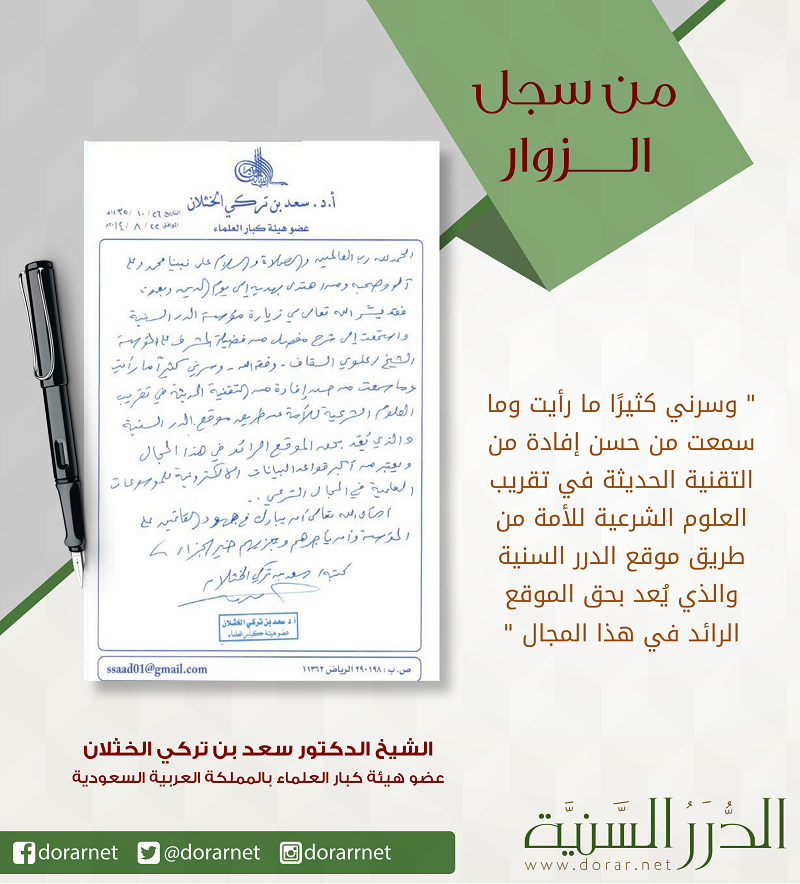 من سجل
الـــزوار
أ.د. سعد بن تركي الخثلان
عضو هيئة كبار العلماء
التاريخ ٢٦ / ١٠ / ١٤٣٥هـ
الموافق ٢٢ / ٨ / ٢٠١٤م
الحمد لله رب العالمين والصلاة والسلام على نبينا محمد وعلى
آله وصحبه ومن اهتدى بهديه إلى يوم الدين وبعد:
فقد يسّر الله تعالى لي زيارة مؤسسة الدرر السنية
واستمعت إلى شرح مفصل من فضيلة المشرف على المؤسسة
الشيخ / علوي السقاف - وفقه الله - وسرني كثيرًا ما رأيت
وما سمعت من حسن إفادة من التقنية الحديثة في تقريب
العلوم الشرعية للأمة عن طريق موقع الدرر السنية
والذي يُعد بحق الموقع الرائد في هذا المجال
ويعتبر من أكبر قواعد البيانات الالكترونية للموسوعات
العلمية في المجال الشرعي ..
أسأل الله تعالى أن يبارك في جهود القائمين على
المؤسسة وأن يأجرهم ويجزيهم خير الجزاء
كتبه / سعد بن تركي الخثلان
أ.د. سعد بن تركي الخثلان
عضو هيئة كبار العلماء
ص.ب : ٢٩٠١٩٨ الرياض ١١٣٦٢
ssaad01@gmail.com
" وسرني كثيرًا ما رأيت وما
سمعت من حسن إفادة من
التقنية الحديثة في تقريب
العلوم الشرعية للأمة من
طريق موقع الدرر السنية
والذي يُعد بحق الموقع
الرائد في هذا المجال "
الشيخ الدكتور سعد بن تركي الخثلان
عضو هيئة كبار العلماء بالمملكة العربية السعودية
الدُّرَرُ السَّنيَّة
www.dorar.net
dorarnet @dorarnet dorarrnet